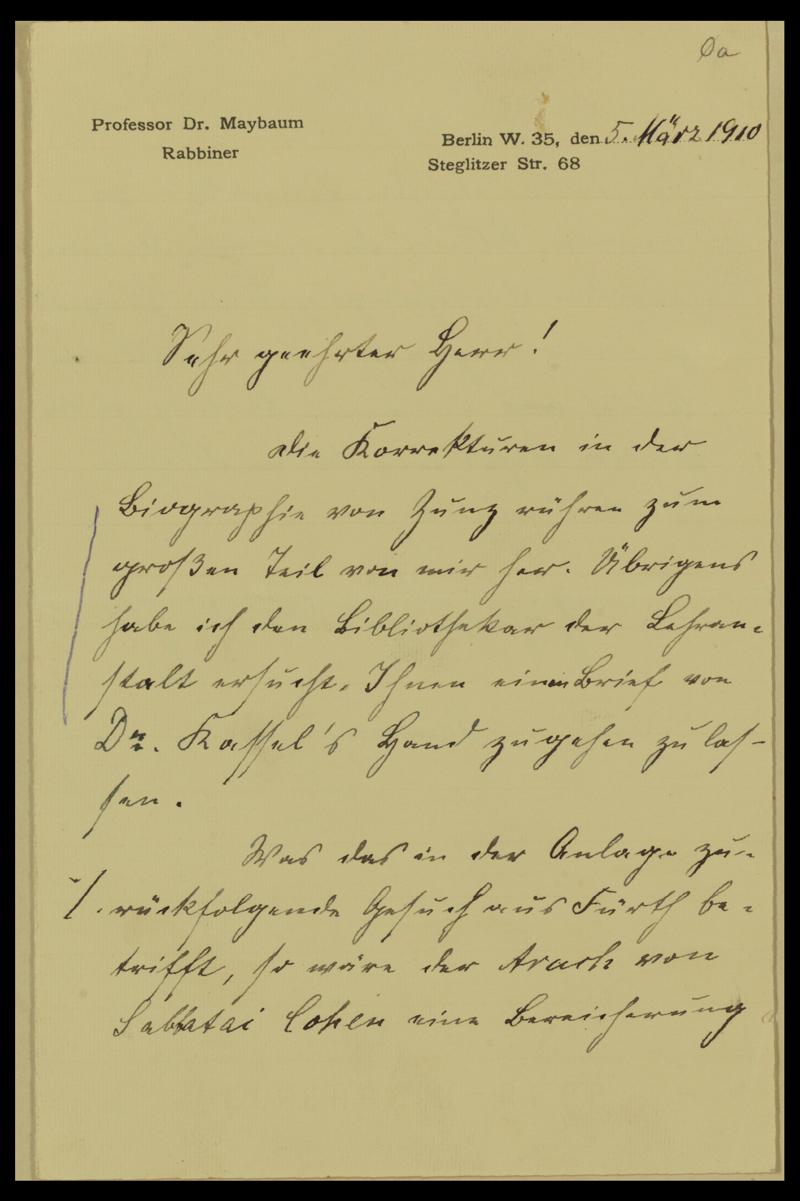 Da
Professor Dr. Maybaum
Rabbiner
Berlin W. 35, den 5. März 1910
Steglitzer Str. 68
Sehr geehrter Herr!
Die Korrekturen in der
Biographie von Zunz rühren zum
großen Teil von mir her. Übrigens
habe ich den Bibliothekar der Lehran-
stalt ersucht, Ihnen einen Brief von
Dr. Kassel's Hand zugehen zu las-
sen.
Was das in der Anlage zu-
./. rückfolgende Gesuch aus Fürth be-
trifft, so wäre der Aruch von
Sabbatai Cohen eine Bereicherung